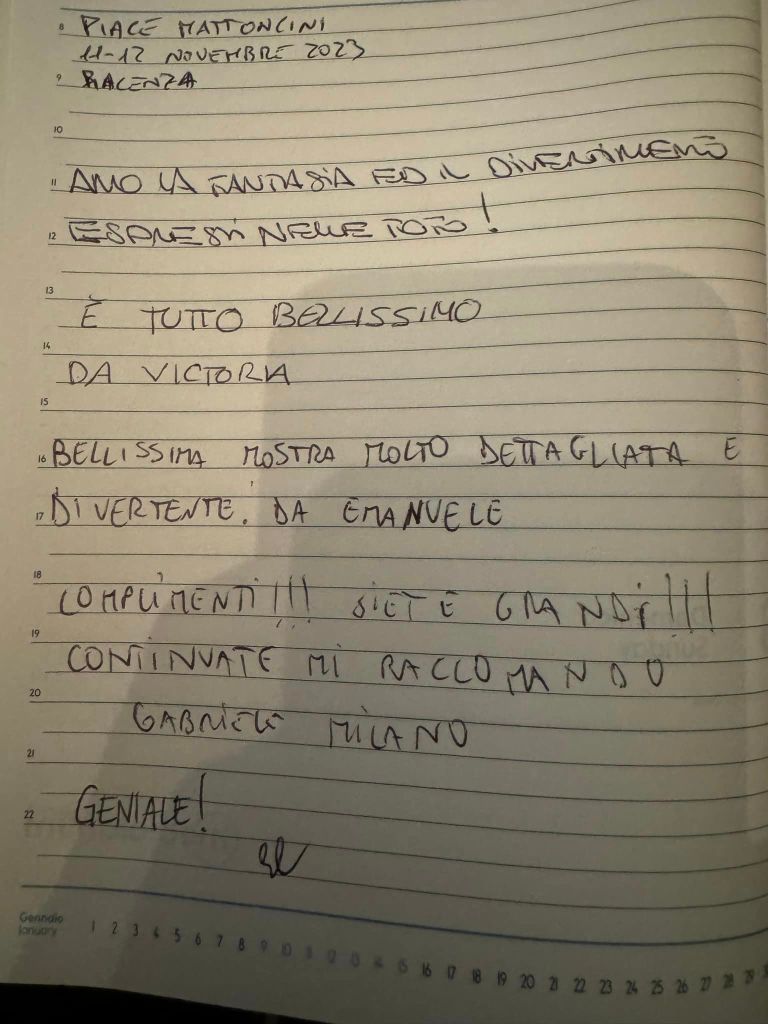 8 PIACE MATTONCINI
11-12 NOVEMBRE 2023
9 PIACENZA
10
11 AMO LA FANTASIA ED IL DIVERTIMENTO
12 ESPRESSI NELLE FOTO!
13
È TUTTO BELLISSIMO
14
DA VICTORIA
15
16 BELLISSIMA MOSTRA MOLTO DETTAGLIATA E
17 DIVERTENTE. DA EMANUELE
18
COMPLIMENTI!!! SIETE GRANDI!!!
19
CONTINUATE MI RACCOMANDO
20
GABRIELE MILANO
21
22 GENIALE!
Gennaio
January 1 2 3 4 5 6 7 8 9 10 11 12 13 14 15 16 17 18 19 20 21 22 23 24 25 26 27 28 29